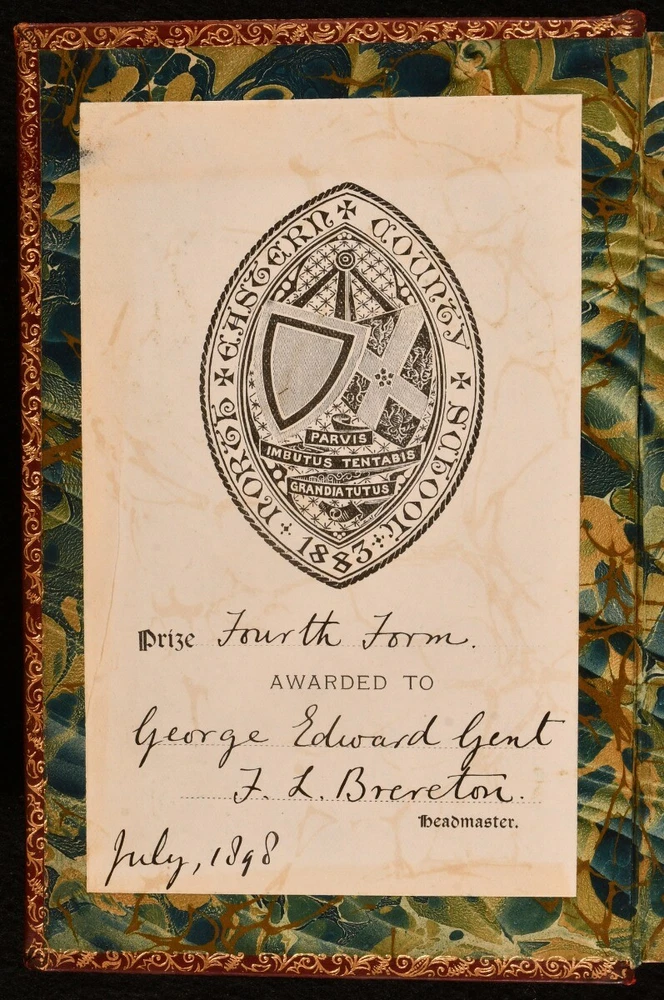 NORTH ✠ EASTERN ✠ COUNTY ✠ SCHOOL
PARVIS
IMBUTUS TENTABIS
GRANDIA TUTUS
1883
Prize Fourth Form.
AWARDED TO
George Edward Gent
F. L. Brereton.
Headmaster.
July, 1898